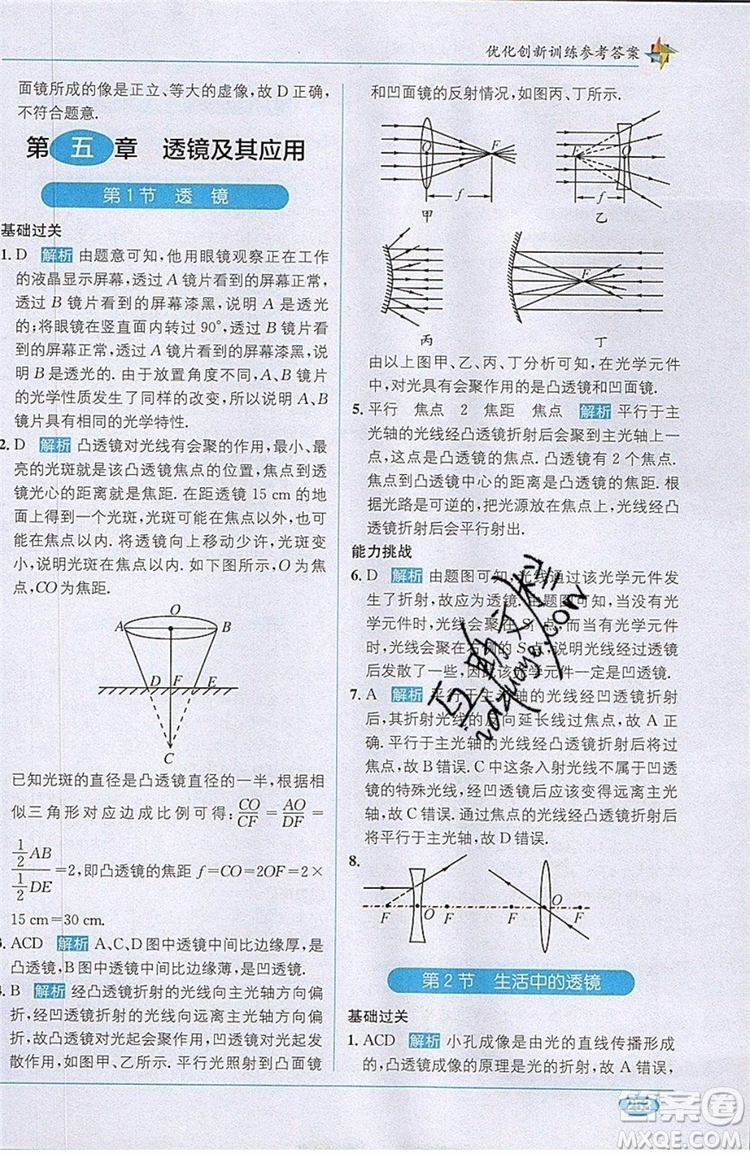 优化创新训练参考答案
面镜所成的像是正立、等大的虚像,故 D 正确,
不符合题意.
第五章 透镜及其应用
第1节 透 镜
基础过关
1. D 解析 由题意可知,他用眼镜观察正在工作
的液晶显示屏幕,透过 A 镜片看到的屏幕正常,
透过 B 镜片看到的屏幕漆黑,说明 A 是透光
的;将眼镜在竖直面内转过 90°,透过 A 镜片看
到的屏幕漆黑,透过 B 镜片看到的屏幕正常,说
明 B 是透光的.由于放置角度不同,两个镜片
的光学性质发生了不同的改变,所以 A 镜片与
B 镜片具有不同的光学特性.
2. D 解析 凸透镜对光线有会聚的作用,最小、最
亮的光斑就是该凸透镜焦点的位置,焦点到凸
透镜光心的距离就是焦距.在距透镜 15 cm 的地
面上得到一个光斑,光斑可能在焦点以内,也
可能在焦点以外.将透镜向上移动少许,光斑变
小,说明光斑在焦点以内.如下图所示,C 是焦
点,CO 为焦距.
O
A B
D F E
C
已知光斑的直径是凸透镜直径的一半,根据相
似三角形对应边成比例可得 CO/CF = AO/DF =
(1/2 AB)/(1/2 DE) =2,即凸透镜的焦距 f=CO=2OF=2×
15 cm=30 cm.
3. ACD 解析 A、C、D 图中透镜中间比边缘厚,是
凸透镜,B 图中透镜中间比边缘薄,是凹透镜.
4. B 解析 经凸透镜折射的光线向主光轴方向偏
折,经凹透镜折射的光线向远离主光轴方向偏
折,故凸透镜对光起会聚作用,凹透镜对光起发
散作用,如图甲、乙所示.平行光经凸透镜、凹透镜
和凹面镜的反射情况,如图丙、丁所示.
O F f
F O f
甲 乙
F
丙 丁
由以上图甲、乙、丙、丁分析可知,在光学元件
中,对光线有会聚作用的是凸透镜和凹面镜.
5. 平行 焦点 2 焦距 焦点 解析 平行于主
光轴的光线经凸透镜折射后会聚到主光轴上一
点,这一点是焦点,凸透镜有 2 个焦点.
焦点到凸透镜中心的距离是凸透镜的焦距.根
据光路是可逆的,把光源放在焦点上,经凸透镜
折射后会平行射出.
能力挑战
6. D 解析 由题图可知,光线通过该光学元件发
生了折射,故应为透镜.因为如果没有这个光
学元件时,光线会聚在 S′点,而有了这个光学元
件时,光线会聚在右侧的 S 点,说明光线经透镜
后发散了一些,因此该光学元件一定是凹透镜.
7. A 解析 平行于主光轴的光线经凹透镜折射
后,其折射光线的反向延长线过焦点,故 A 正确.
平行于主光轴的光线经凹透镜折射后应变得发
散,故 B 错误.C 中的光线不属于从凹透
镜的特殊光线,经凹透镜后应该变得更发散,故
C 错误.射向另一侧焦点的光线经凹透镜折射后
将平行于主光轴,故 D 错误.
8.
F O F F O F
第2节 生活中的透镜
基础过关
1. ACD 解析 小孔成像是由光的直线传播形成
的,凸透镜成像的原理是光的折射,故 A 错误.
263
百助文程
idquoye.com
答案圈
MXQE.COM